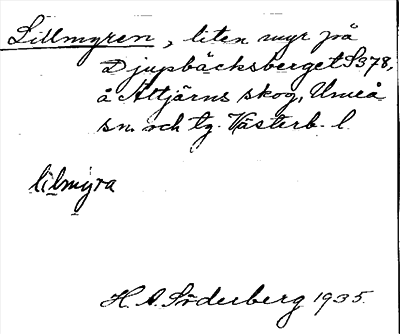 Lillmyren, liten myr på
Djupbäcksberget S378,
å Ältjärns skog, Umeå
sn. och tg. Västerb. l.
lilmyra
H. A. Söderberg 1935.